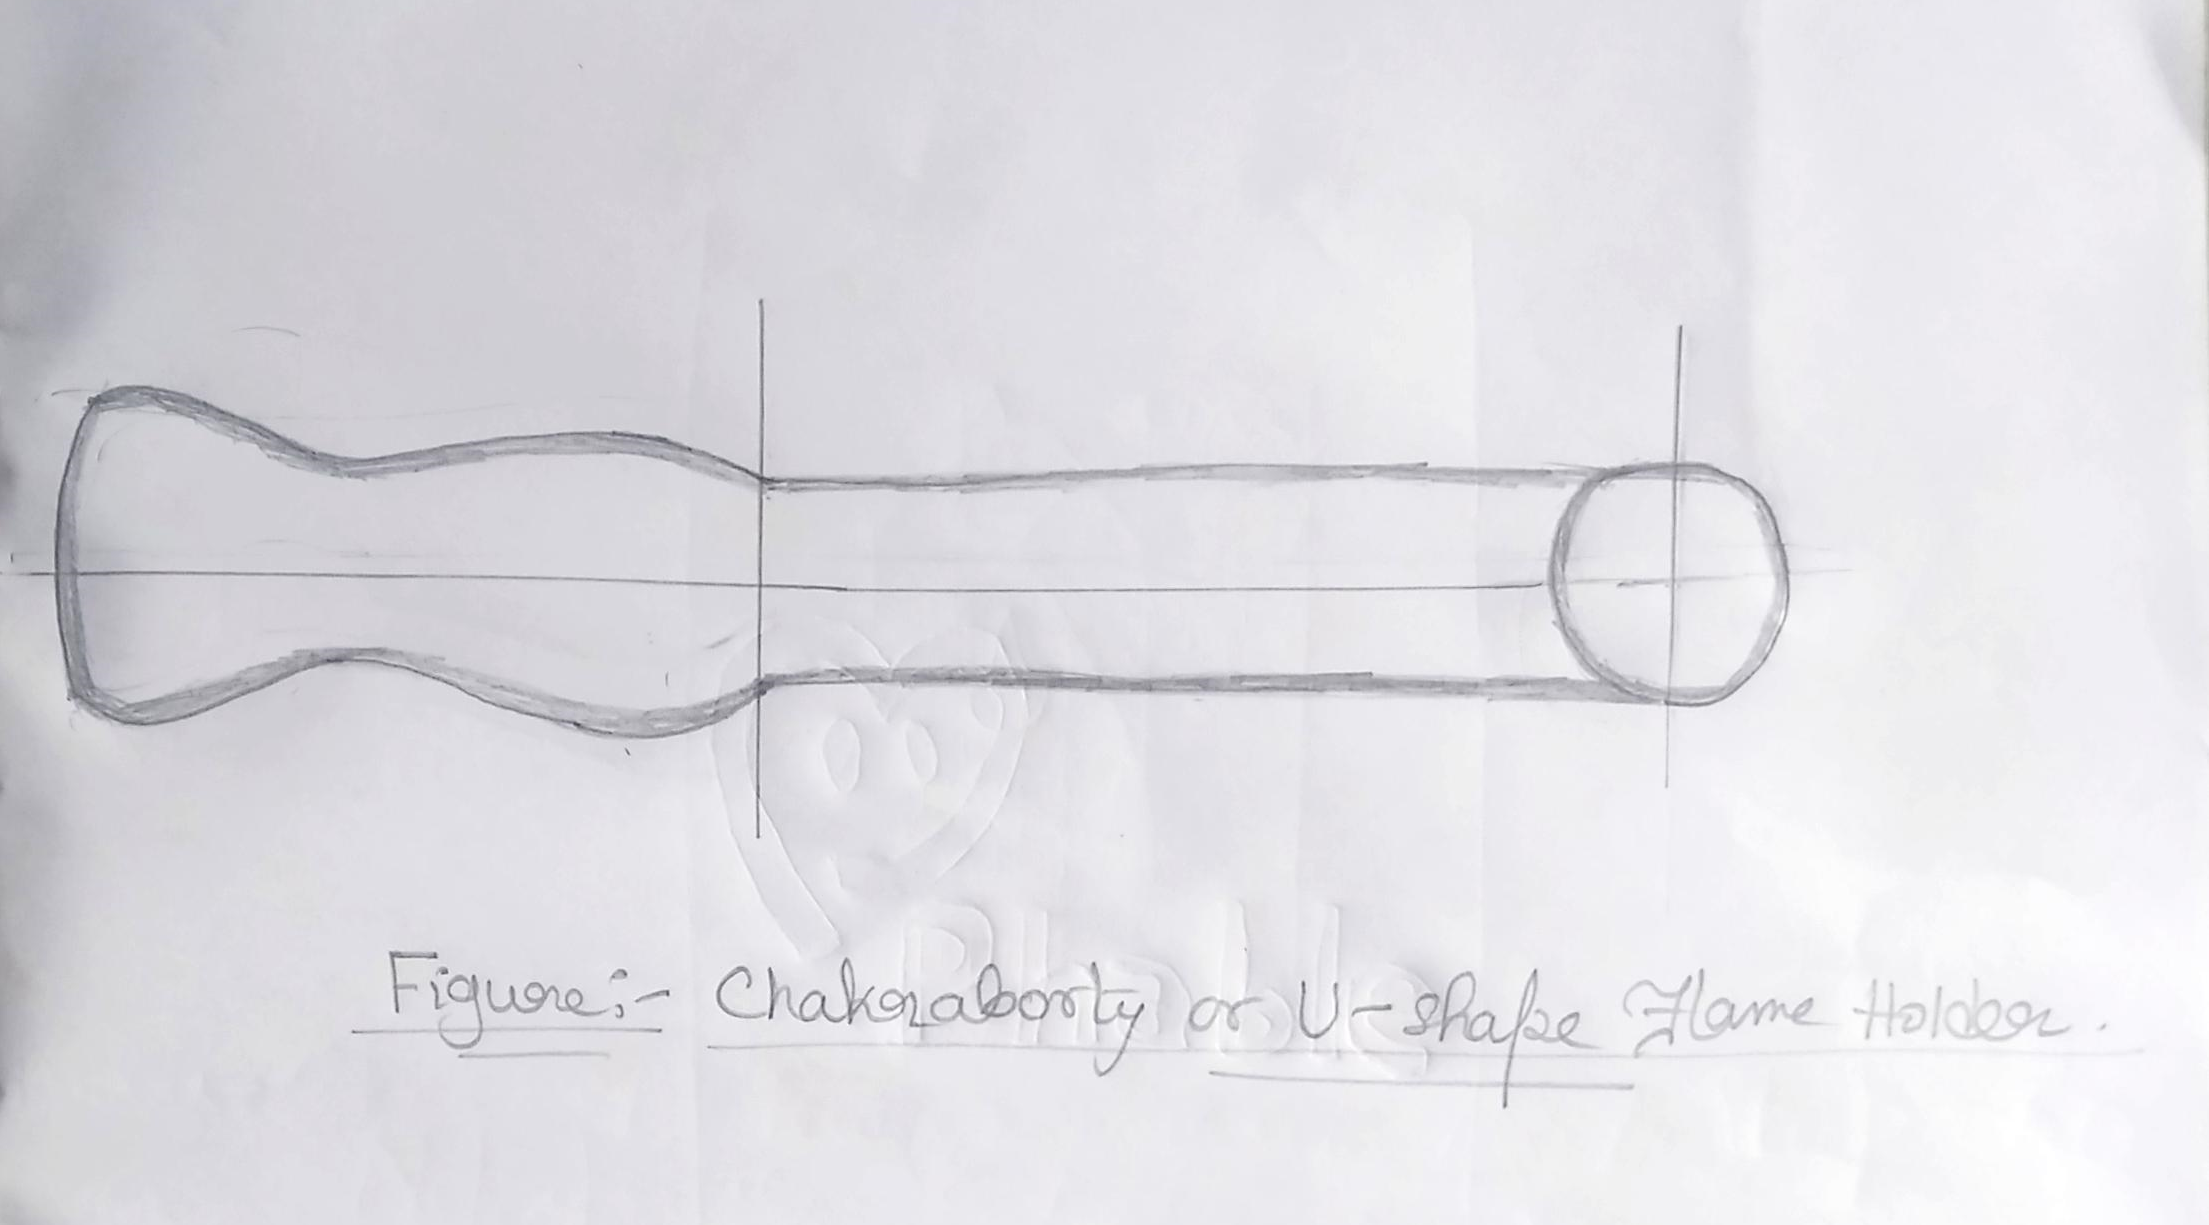 Figure:- Chakraborty or U-shape Flame Holder.